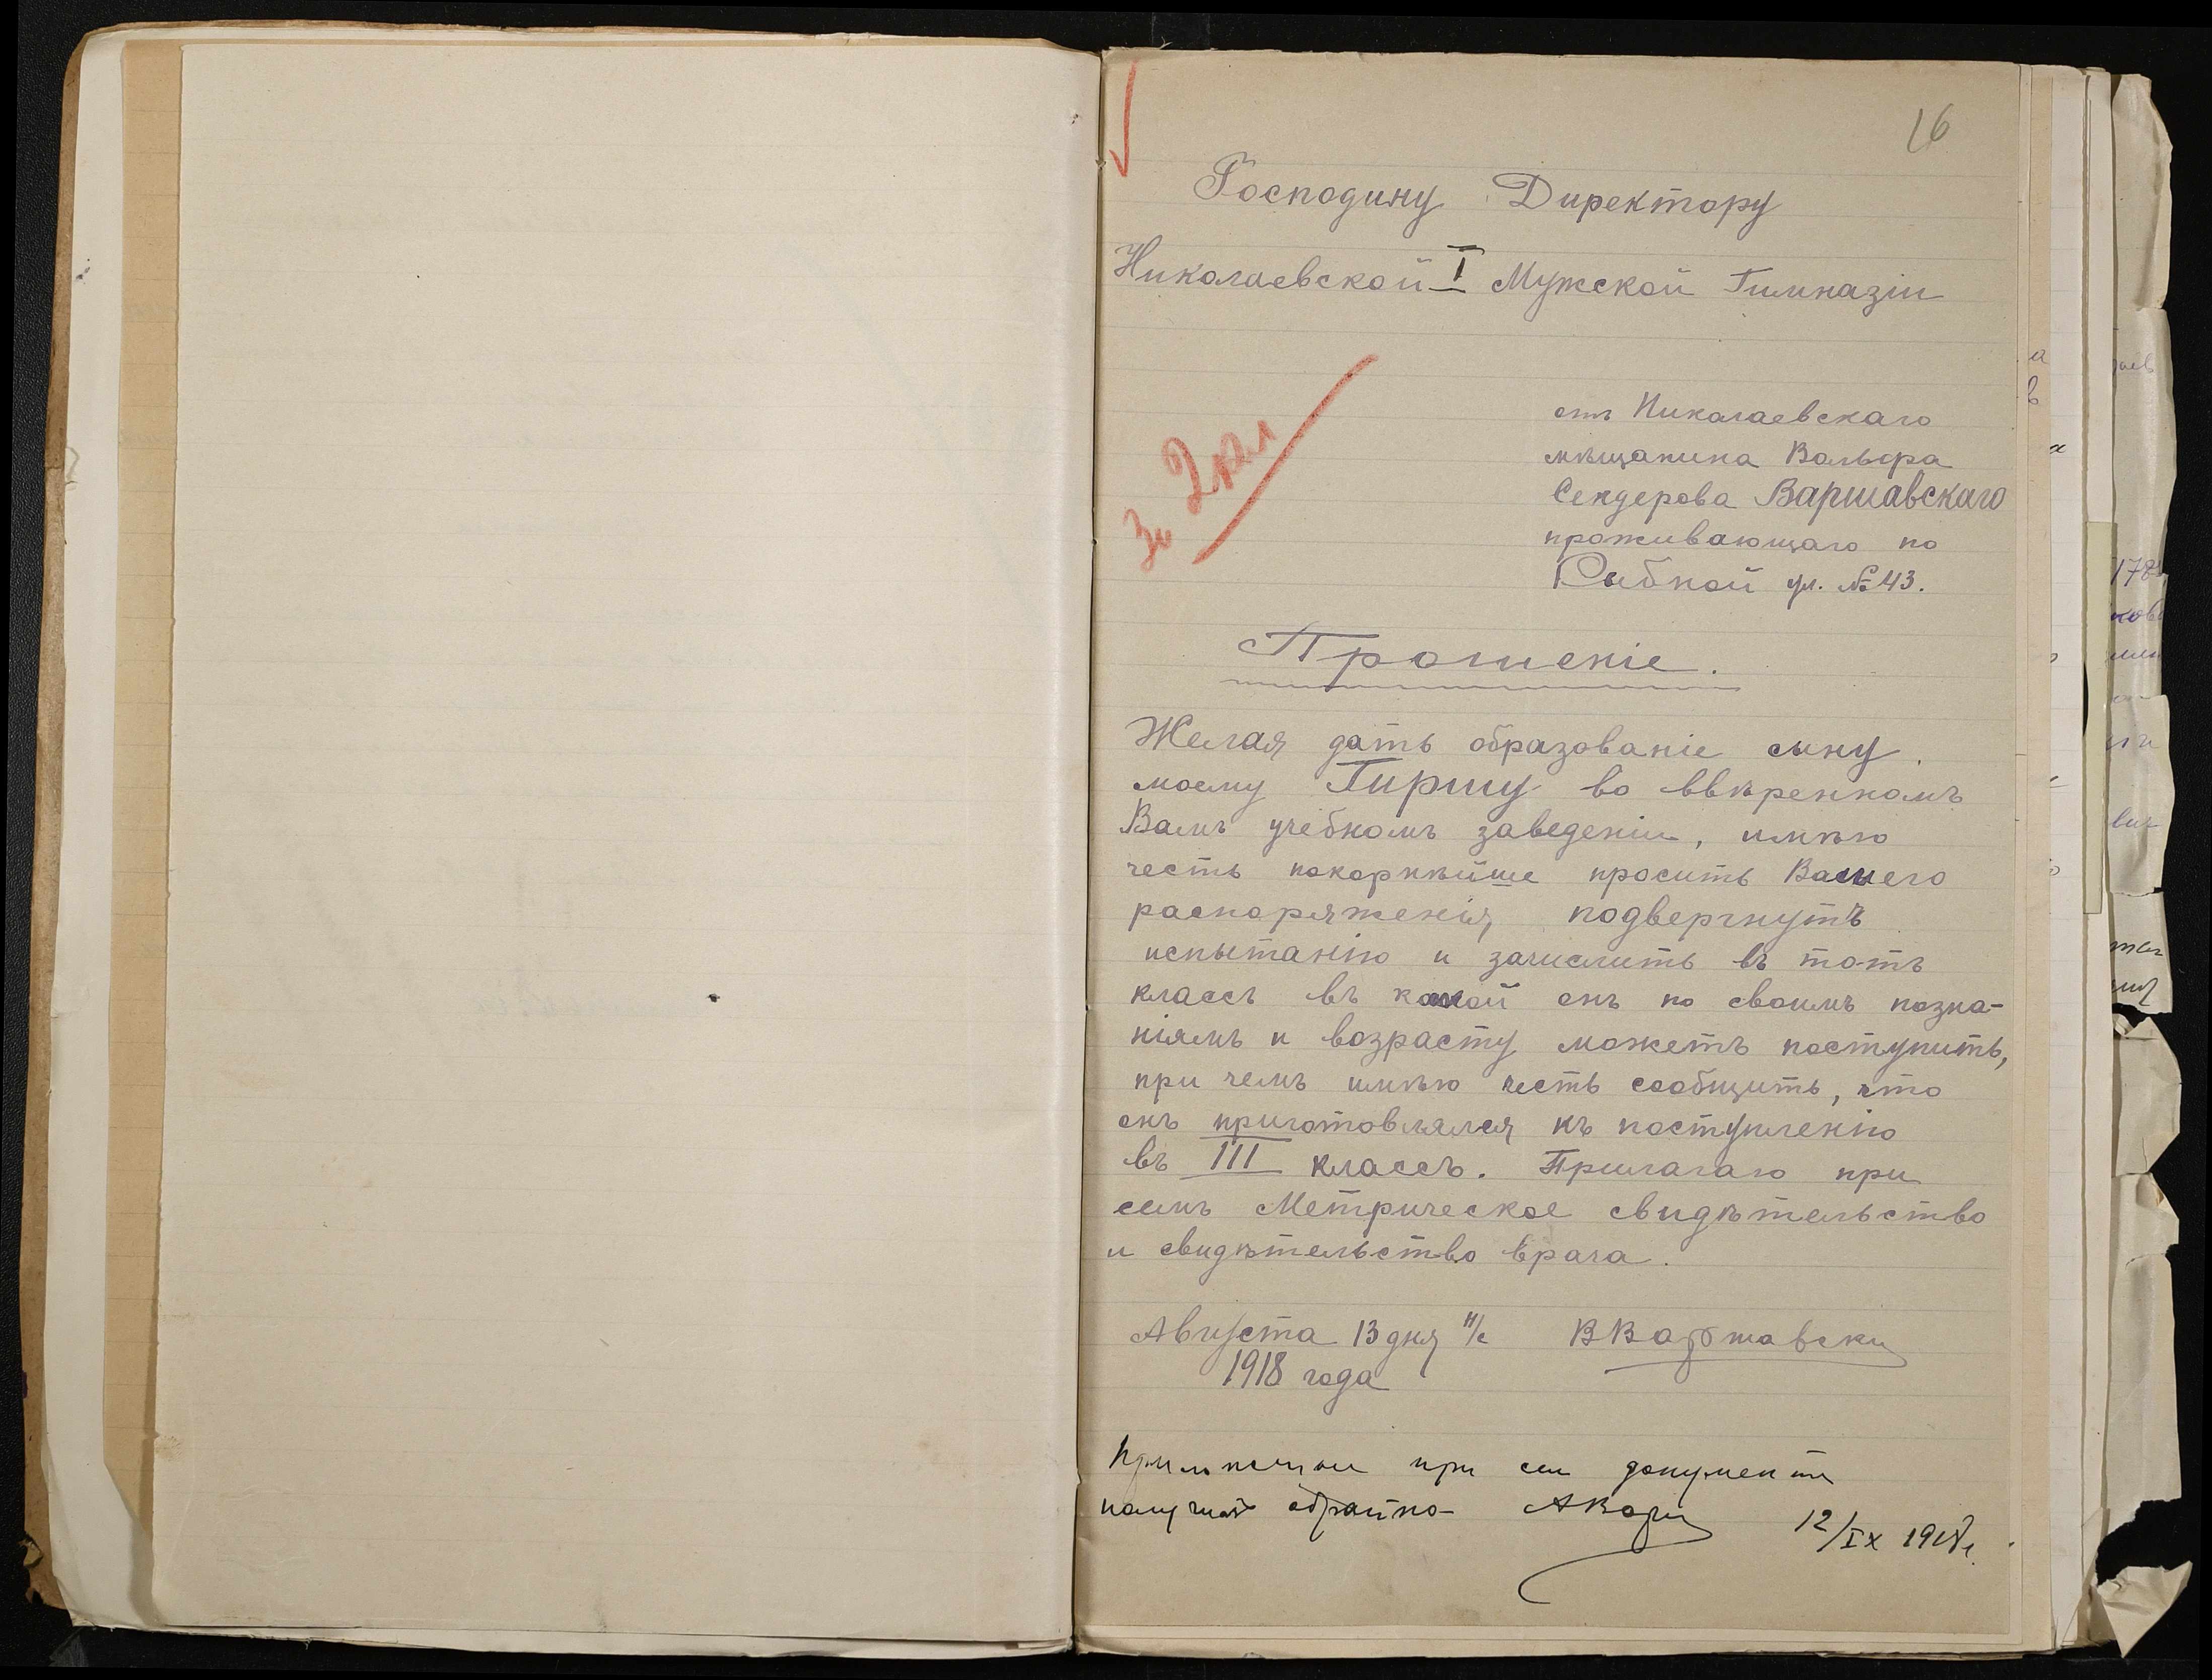 16
Господину Директору
Николаевской I Мужской Гимназіи
отъ Николаевскаго
мѣщанина Вольфа
Сендерова Варшавскаго
проживающаго по
Рыбной ул. №43.
Прошеніе.
Желая дать образованіе сыну
моему Гиршу во ввѣренномъ
Вамъ учебномъ заведеніи, имѣю
честь покорнѣйше просить Вашего
распоряженія, подвергнуть
испытанію и зачислить въ тотъ
классъ въ какой онъ по своимъ позна-
ніямъ и возрасту можетъ поступить,
при чемъ имѣю честь сообщить, что
онъ приготовлялся къ поступленію
въ III классъ. Прилагаю при
семъ Метрическое свидѣтельство
и свидѣтельство врача.
Августа 13 дня н/с ВВаршавски
1918 года
при сем документы
получил обратно
12/IX 1918 г.